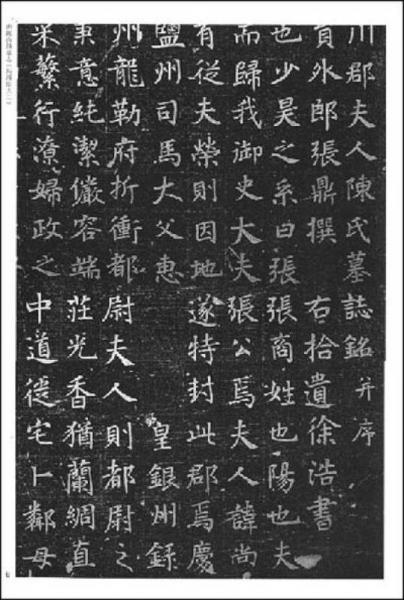 川郡夫人陳氏墓誌銘并序
員外郎張鼎撰 右拾遺徐浩書
也少昊之系曰張張商姓也陽也夫
而歸我御史大夫張公焉夫人諱尚
有從夫榮則因地遂特封此郡焉慶
鹽州司馬大父惠 皇銀州錄
州龍勒府折衝都尉夫人則都尉之
秉意純潔儼容端莊光香猶蘭綢直
采蘩行潦婦政之中道徙宅卜鄰母
七